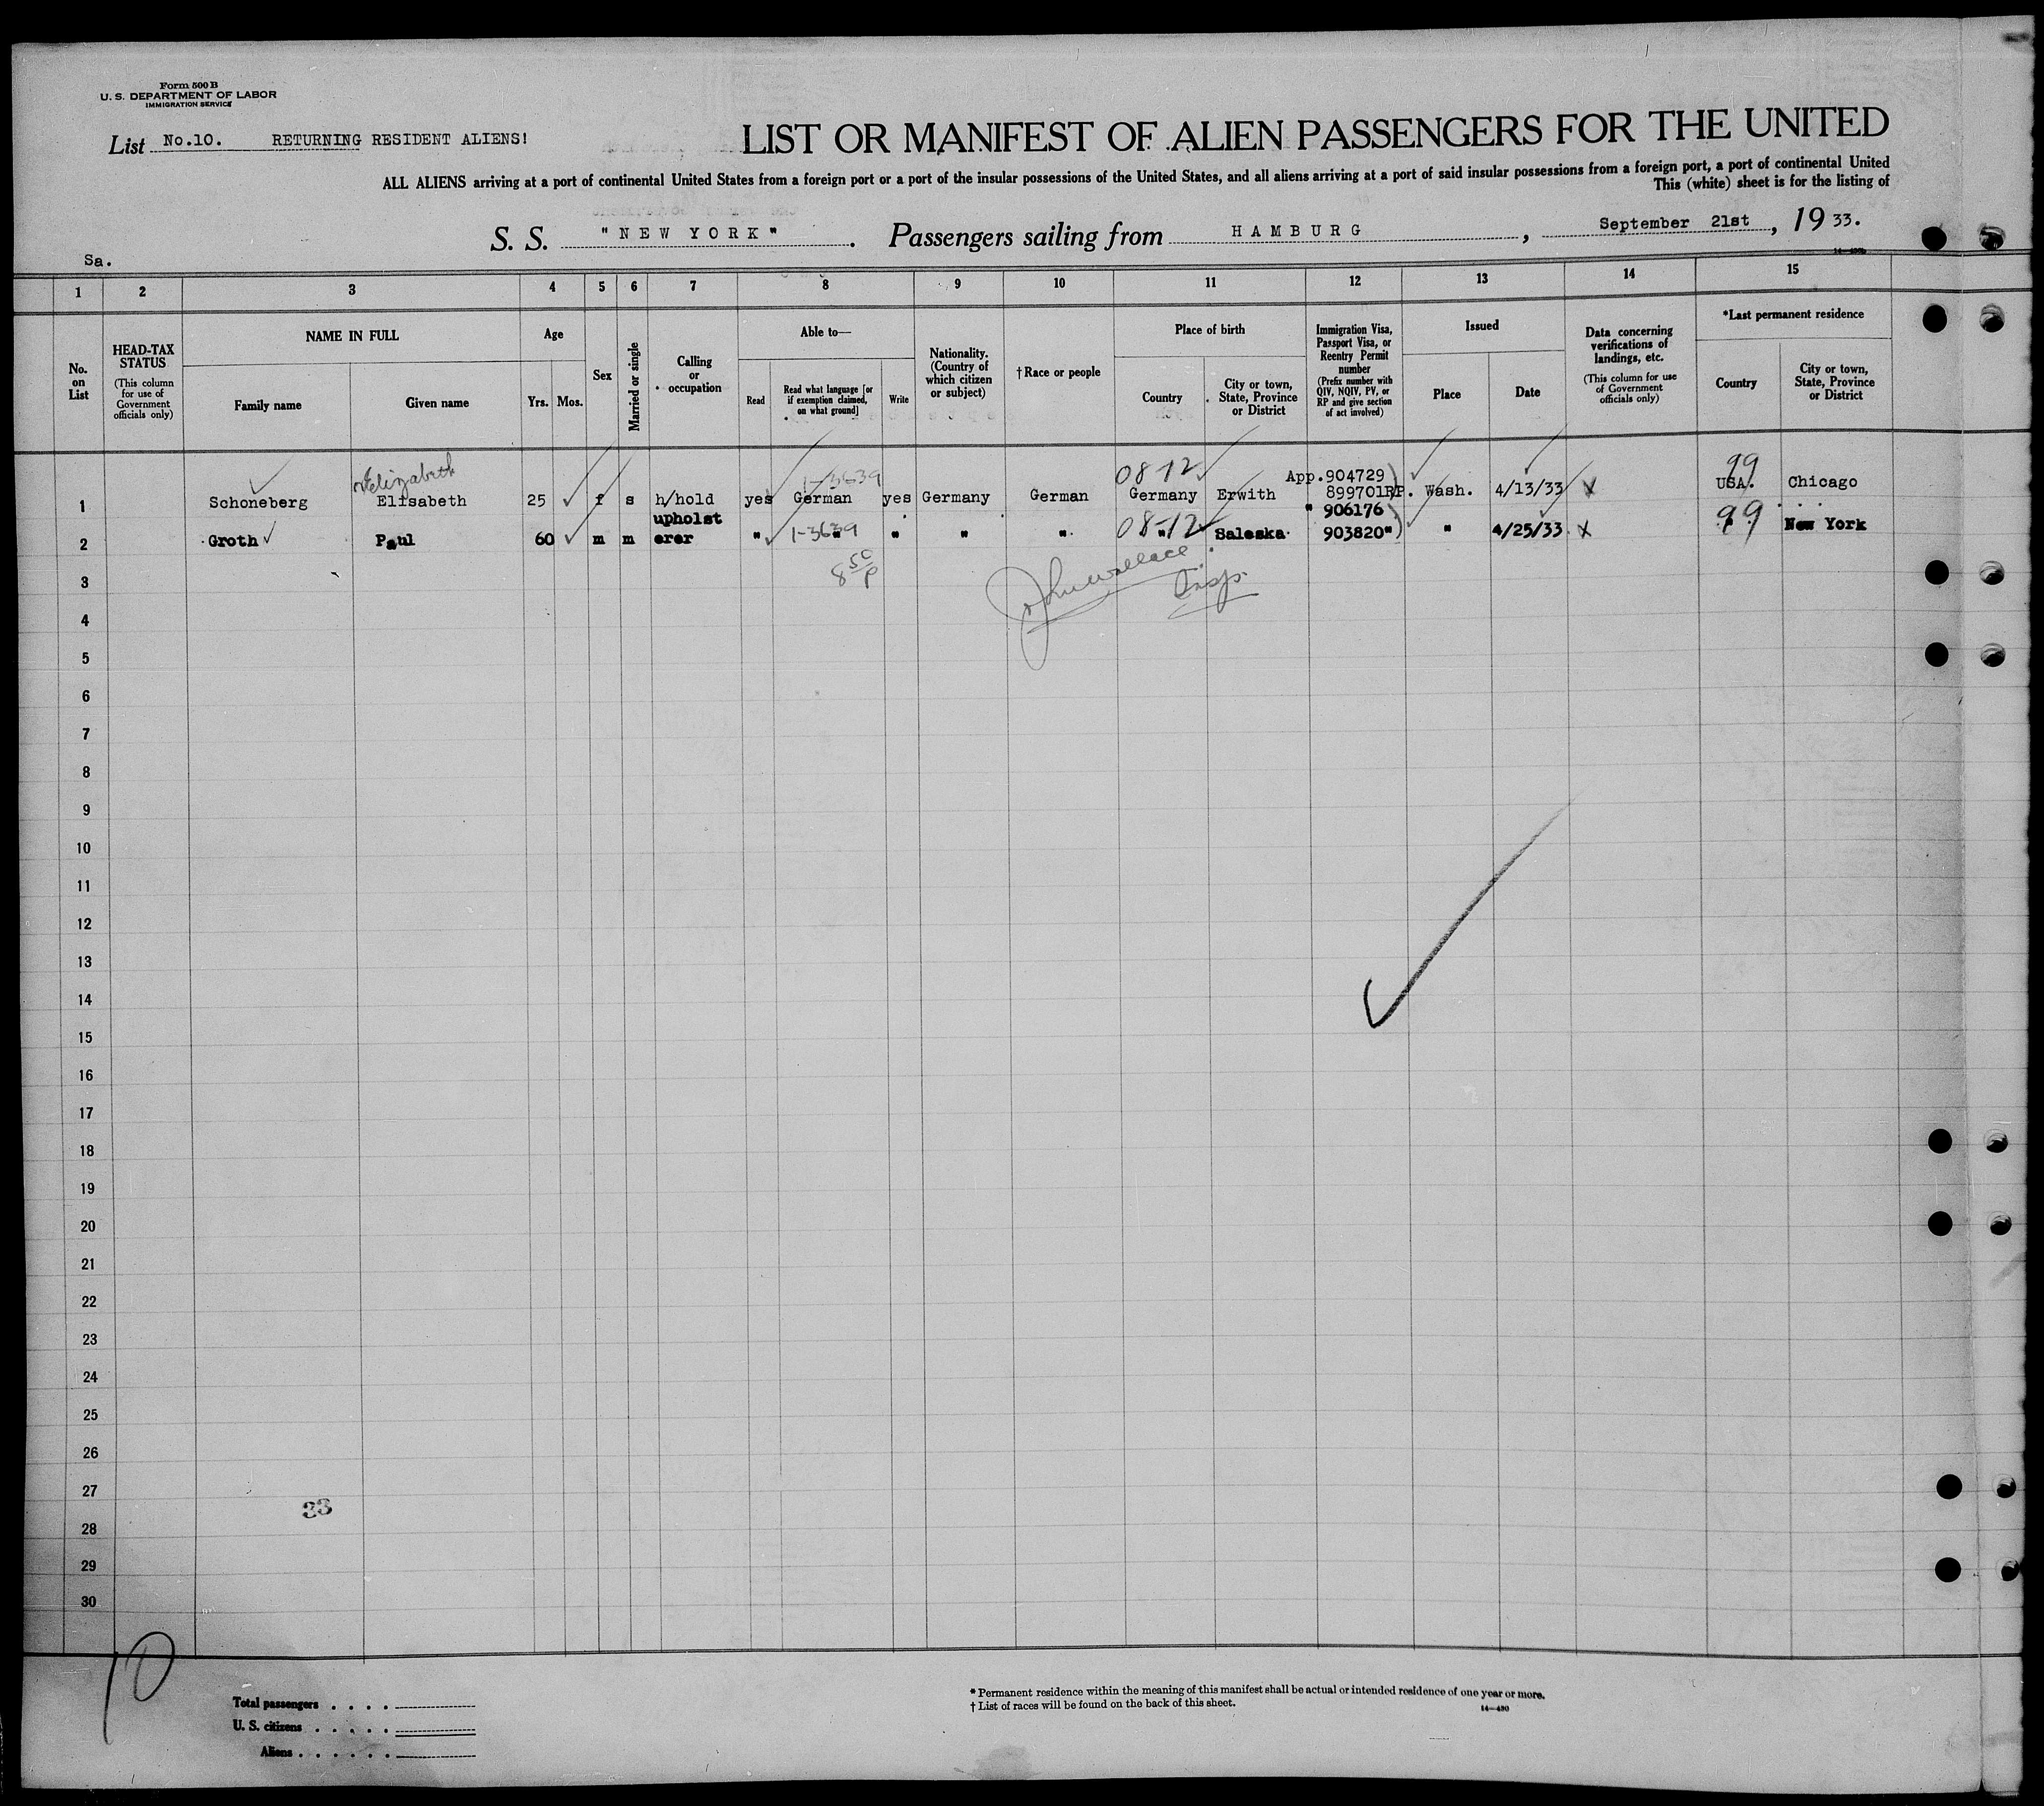 Form 500 B
U. S. DEPARTMENT OF LABOR
IMMIGRATION SERVICE
List No.10. RETURNING RESIDENT ALIENS!
LIST OR MANIFEST OF ALIEN PASSENGERS FOR THE UNITED
ALL ALIENS arriving at a port of continental United States from a foreign port or a port of the insular possessions of the United States, and all aliens arriving at a port of said insular possessions from a foreign port, a port of continental United
This (white) sheet is for the listing of
S. S. "NEW YORK". Passengers sailing from HAMBURG, September 21st, 19 33.
Sa.
1 2 3 4 5 6 7 8 9 10 11 12 13 14 15
No. on List
HEAD-TAX STATUS
(This column for use of Government officials only)
NAME IN FULL
Family name
Given name
Age
Yrs.
Mos.
Sex
Married or single
Calling or occupation
Able to—
Read
Read what language [or if exemption claimed, on what ground]
Write
Nationality. (Country of which citizen or subject)
† Race or people
Place of birth
Country
City or town, State, Province or District
Immigration Visa, Passport Visa, or Reentry Permit number
(Prefix number with QIV, NQIV, PV, or RP and give section of act involved)
Issued
Place
Date
Data concerning verifications of landings, etc.
(This column for use of Government officials only)
*Last permanent residence
Country
City or town, State, Province or District
Elizabeth 1-3639 08-12 App.904729 99
1 Schoneberg Elisabeth 25 f s h/hold yes German yes Germany German Germany Erwith 899701RP. Wash. 4/13/33 USA. Chicago
upholst " 906176
2 Groth Paul 60 m m erer " 1-3639 " " " " 08-12 " Saleska 903820") " 4/25/33 99 New York
3 8 50 P John Wallace Insp.
4
5
6
7
8
9
10
11
12
13
14
15
16
17
18
19
20
21
22
23
24
25
26
27
33
28
29
30
10
Total passengers . . . .
U. S. citizens . . . . .
Aliens . . . . . .
* Permanent residence within the meaning of this manifest shall be actual or intended residence of one year or more.
† List of races will be found on the back of this sheet.
14—430